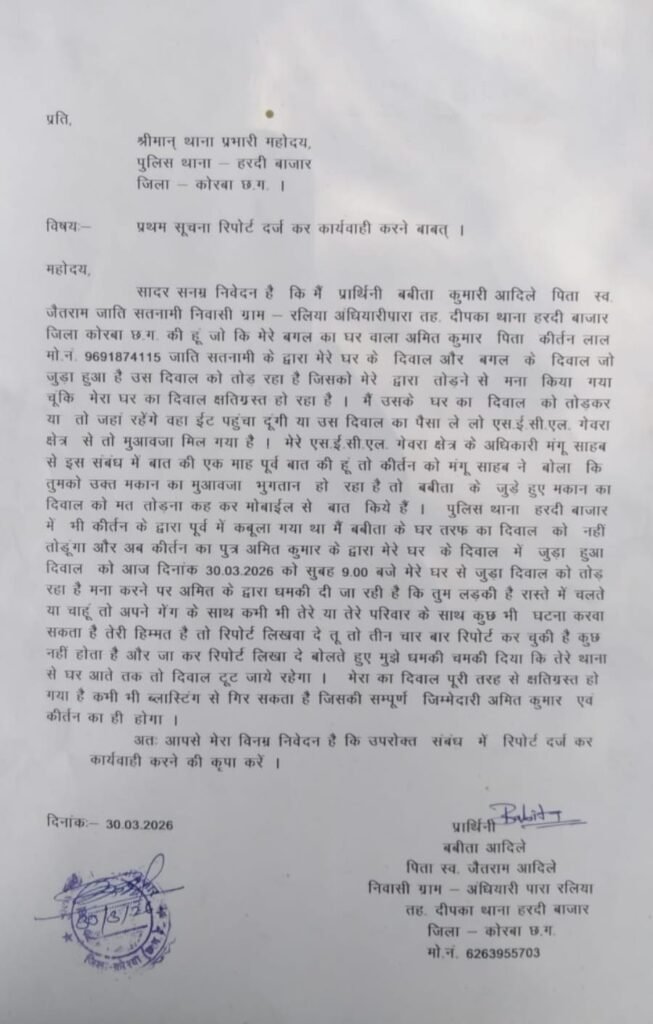 प्रति,
श्रीमान् थाना प्रभारी महोदय,
पुलिस थाना – हरदी बाजार
जिला – कोरबा छ.ग. ।
विषयः– प्रथम सूचना रिपोर्ट दर्ज कर कार्यवाही करने बाबत् ।
महोदय,
सादर सनम्र निवेदन है कि मैं प्रार्थिनी बबीता कुमारी आदिले पिता स्व.
जैतराम जाति सतनामी निवासी ग्राम – रलिया अंधियारीपारा तह. दीपका थाना हरदी बाजार
जिला कोरबा छ.ग. की हूं जो कि मेरे बगल का घर वाला अमित कुमार पिता कीर्तन लाल
मो.नं. 9691874115 जाति सतनामी के द्वारा मेरे घर के दिवाल और बगल के दिवाल जो
जुड़ा हुआ है उस दिवाल को तोड़ रहा है जिसको मेरे द्वारा तोड़ने से मना किया गया
चूंकि मेरा घर का दिवाल क्षतिग्रस्त हो रहा है । मैं उसके घर का दिवाल को तोडकर
या तो जहां रहेंगे वहा ईट पहुंचा दूंगी या उस दिवाल का पैसा ले लो एस.ई.सी.एल. गेवरा
क्षेत्र से तो मुआवजा मिल गया है । मेरे एस.ई.सी.एल. गेवरा क्षेत्र के अधिकारी मंगू साहब
से इस संबंध में बात की एक माह पूर्व बात की हूं तो कीर्तन को मंगू साहब ने बोला कि
तुमको उक्त मकान का मुआवजा भुगतान हो रहा है तो बबीता के जुड़े हुए मकान का
दिवाल को मत तोड़ना कह कर मोबाईल से बात किये हैं । पुलिस थाना हरदी बाजार
में भी कीर्तन के द्वारा पूर्व में कबूला गया था मैं बबीता के घर तरफ का दिवाल को नहीं
तोडूंगा और अब कीर्तन का पुत्र अमित कुमार के द्वारा मेरे घर के दिवाल में जुड़ा हुआ
दिवाल को आज दिनांक 30.03.2026 को सुबह 9.00 बजे मेरे घर से जुडा दिवाल को तोड़
रहा है मना करने पर अमित के द्वारा धमकी दी जा रही है कि तुम लड़की है रास्ते में चलते
या चाहूं तो अपने गेंग के साथ कभी भी तेरे या तेरे परिवार के साथ कुछ भी घटना करवा
सकता है तेरी हिम्मत है तो रिपोर्ट लिखवा दे तू तो तीन चार बार रिपोर्ट कर चुकी है कुछ
नहीं होता है और जा कर रिपोर्ट लिखा दे बोलते हुए मुझे धमकी चमकी दिया कि तेरे थाना
से घर आते तक तो दिवाल टूट जाये रहेगा । मेरा का दिवाल पूरी तरह से क्षतिग्रस्त हो
गया है कभी भी ब्लास्टिंग से गिर सकता है जिसकी सम्पूर्ण जिम्मेदारी अमित कुमार एवं
कीर्तन का ही होगा ।
अतः आपसे मेरा विनम्र निवेदन है कि उपरोक्त संबंध में रिपोर्ट दर्ज कर
कार्यवाही करने की कृपा करें ।
दिनांकः– 30.03.2026
प्रार्थिनी
बबीता आदिले
पिता स्व. जैतराम आदिले
निवासी ग्राम – अंधियारी पारा रलिया
तह. दीपका थाना हरदी बाजार
जिला – कोरबा छ.ग.
मो.नं. 6263955703
30/3/26